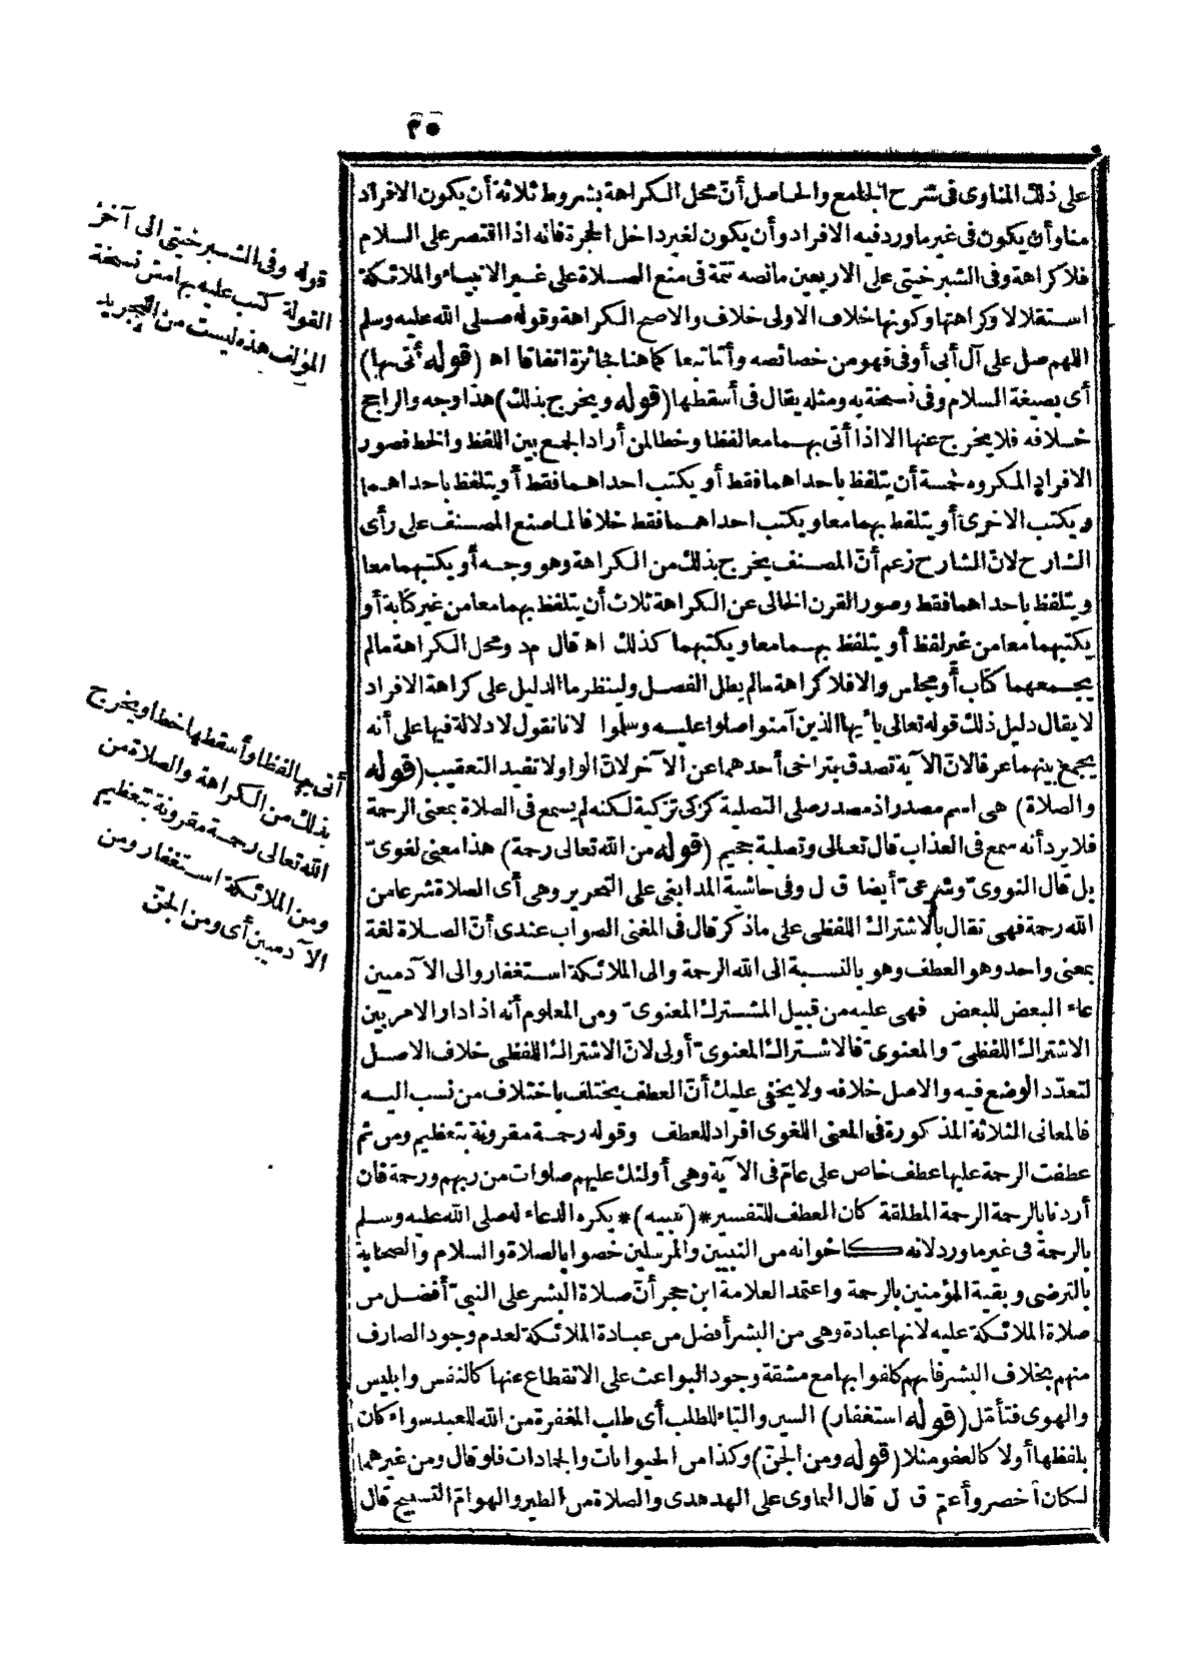 ٢٥
على ذلك المناوى فى شرح الجامع والحاصل أنّ محل الكراهة بشروط ثلاثة أن يكون الافراد
منا وأن يكون فى غير ما ورد فيه الافراد وأن يكون لغير داخل الحجرة فانه اذا اقتصر على السلام
فلا كراهة وفى الشبرخيتى على الاربعين مانصه تتمة فى منع الصلاة على غير الانبياء والملائكة
استقلالا وكراهتها وكونها خلاف الاولى خلاف والاصح الكراهة وقوله صلى الله عليه وسلم
اللهم صل على آل أبى أوفى فهو من خصائصه وأمّا تبعا كما هنا فجائزة اتفاقا اه (قوله أتى بها)
أى بصيغة السلام وفى نسخة به ومثله يقال فى أسقطها (قوله ويخرج بذلك) هذا وجه والراجح
خلافه فلا يخرج عنها الا اذا أتى بهما معا لفظا وخطا لمن أراد الجمع بين اللفظ والخط فصور
الافراد المكروه خمسة أن يتلفظ باحداهما فقط أو يكتب احداهما فقط أو يتلفظ باحداهما
ويكتب الاخرى أو يتلفظ بهما معا ويكتب احداهما فقط خلافا لما صنع المصنف على رأى
الشارح لانّ الشارح زعم أنّ المصنف يخرج بذلك من الكراهة وهو وجه أو يكتبهما معا
ويتلفظ باحداهما فقط وصور القرن الخالى عن الكراهة ثلاث أن يتلفظ بهما معا من غير كتابة أو
يكتبهما معا من غير لفظ أو يتلفظ بهما معا ويكتبهما كذلك اه قال م د ومحل الكراهة مالم
يجمعهما كتاب أو مجلس والا فلا كراهة مالم يطل الفصل ولينظر ما الدليل على كراهة الافراد
لا يقال دليل ذلك قوله تعالى يا أيها الذين آمنوا صلوا عليه وسلموا لانا نقول لا دلالة فيها على أنه
يجمع بينهما عرفا لانّ الآية تصدق بتراخى أحدهما عن الآخر لانّ الواو لا تفيد التعقيب (قوله
والصلاة) هى اسم مصدر اذ مصدر صلى التصلية كزكى تزكية لكنه لم يسمع فى الصلاة بمعنى الرحمة
فلا يرد أنه سمع فى العذاب قال تعالى وتصلية جحيم (قوله من الله تعالى رحمة) هذا معنى لغوىّ
بل قال النووىّ وشرعىّ أيضا ق ل وفى حاشية المدابغى على التحرير وهى أى الصلاة شرعا من
الله رحمة فهى تقال بالاشتراك اللفظى على ماذكر قال فى المغنى الصواب عندى أنّ الصلاة لغة
بمعنى واحد وهو العطف وهو بالنسبة الى الله الرحمة والى الملائكة استغفار والى الآدميين
عاء البعض للبعض فهى عليه من قبيل المشترك المعنوىّ ومن المعلوم أنه اذا دار الامر بين
الاشتراك اللفظىّ والمعنوىّ فالاشتراك المعنوىّ أولى لانّ الاشتراك اللفظى خلاف الاصل
لتعدّد الوضع فيه والاصل خلافه ولا يخفى عليك أنّ العطف يختلف باختلاف من نسب اليه
فالمعانى الثلاثة المذكورة فى المعنى اللغوى افراد للعطف وقوله رحمة مقرونة بتعظيم ومن ثم
عطفت الرحمة عليها عطف خاص على عامّ فى الآية وهى أولئك عليهم صلوات من ربهم ورحمة فان
أردنا بالرحمة الرحمة المطلقة كان العطف للتفسير *(تنبيه)* يكره الدعاء له صلى الله عليه وسلم
بالرحمة فى غير ما ورد لانه كاخوانه من النبيين والمرسلين خصوا بالصلاة والسلام والصحابة
بالترضى وبقية المؤمنين بالرحمة واعتمد العلامة ابن حجر أنّ صلاة البشر على النبىّ أفضل من
صلاة الملائكة عليه لانها عبادة وهى من البشر أفضل من عبادة الملائكة لعدم وجود الصارف
منهم بخلاف البشر فانهم كلفوا بها مع مشقة وجود البواعث على الانقطاع عنها كالنفس وابليس
والهوى فتأمّل (قوله استغفار) السين والتاء للطلب أى طلب المغفرة من الله للعبد سواء كان
بلفظها أولا كالعفو مثلا (قوله ومن الجنّ) وكذا من الحيوانات والجمادات فلو قال ومن غيرهما
لكان أخصر وأعمّ ق ل قال على الهدهدى والصلاة من الطير والهوامّ التسبيح قال
قوله وفى الشبرخيتى الى آخر
القولة كتب عليه بهامش نسخة
المؤلف هذه ليست من التجريد
أتى بها لفظا وأسقطها خطا ويخرج
بذلك من الكراهة والصلاة من
الله تعالى رحمة مقرونة بتعظيم
ومن الملائكة استغفار ومن
الآدميين أى ومن الجنّ